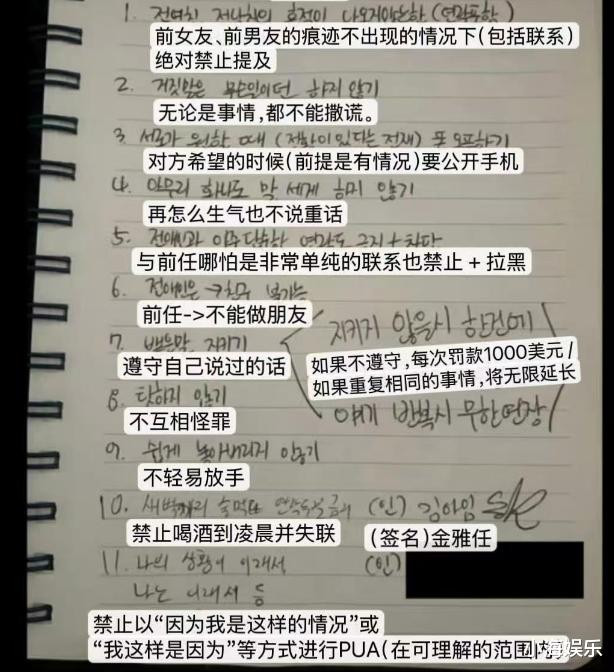 1. 전여친 전남친의 흔적이 나오지않는한 (연락포함)
前女友、前男友的痕迹不出现的情况下(包括联系)
绝对禁止提及
2. 거짓말은 무슨일이던 하지 않기
无论是事情,都不能撒谎。
3 서로가 원할 때 (정황이 있다는 전제) 폰 오픈하기
对方希望的时候(前提是有情况)要公开手机
4. 아무리 화나도 막 세게 하지 않기
再怎么生气也不说重话
5. 전애인과 아주 단순한 연락도 금지 + 차단
与前任哪怕是非常单纯的联系也禁止 + 拉黑
6. 전애인은 → 친구 불가능
前任->不能做朋友
지키지 않을시 한건에
7. 뱉은말 지키기
遵守自己说过的话
如果不遵守,每次罚款1000美元 /
如果重复相同的事情,将无限延长
8. 탓하지 않기
반복시 무한연장
不互相怪罪
9. 쉽게 놓아버리지 않기
不轻易放手
10. 새벽까지 연락두절 금지 (인) 김아임
禁止喝酒到凌晨并失联
(签名)金雅任
11. 나의 상황이 이래서 (인)
나는 이래서 등
禁止以“因为我是这样的情况”或
“我这样是因为”等方式进行PUA(在可理解的范围内)
海娱乐